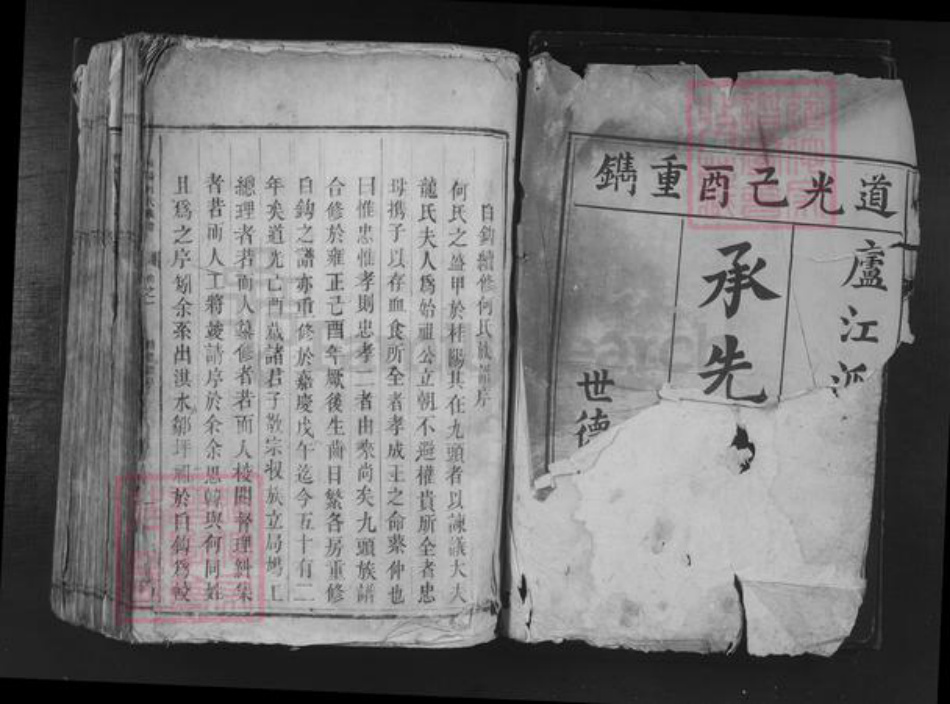 道光己酉重鐫
廬江派
承先
世德
白鈎續修何氏族譜序
何氏之盛甲於桂陽其在九頭者以諫議大夫
龍氏夫人為始祖公立朝不避權貴所全者忠
母携子以存血食所全者孝成王之命蔡仲也
曰惟忠惟孝則忠孝二者由來尚矣九頭族譜
合修於雍正己酉年厥後生齒日繁各房重修
白鈎之譜亦重修於嘉慶戊午迄今五十有二
年矣道光己酉歲諸君子敬宗收族立局塲工
總理者若而人纂修者若而人校閱督理斜集
者若而人工將竣請序於余余思韓與何同姓
且為之序矧余系出淇水鄒坪禰於白鈎為